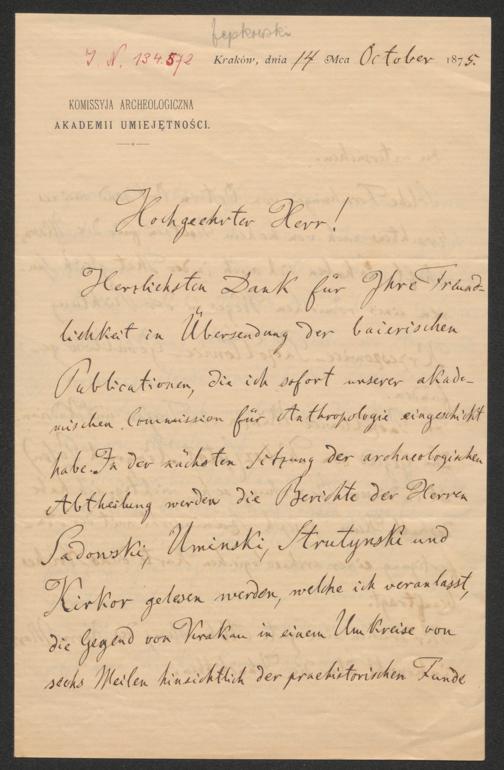 Łepkowski
J. N. 134.572
Kraków, dnia 14 Mca October 1875.
KOMISSYJA ARCHEOLOGICZNA
AKADEMII UMIEJĘTNOŚCI.
Hochgeehrter Herr!
Herzlichsten Dank für Ihre Freund-
lichkeit in Übersendung der baierischen
Publicationen, die ich sofort unserer akade-
mischen Commission für Anthropologie eingeschickt
habe. In der nächsten Sitzung der archaeologischen
Abtheilung werden die Berichte der Herren
Sadowski, Uminski, Strutynski und
Kirkor gelesen werden, welche ich veranlasst,
die Gegend von Krakau in einem Umkreise von
sechs Meilen hinsichtlich der praehistorischen Funde